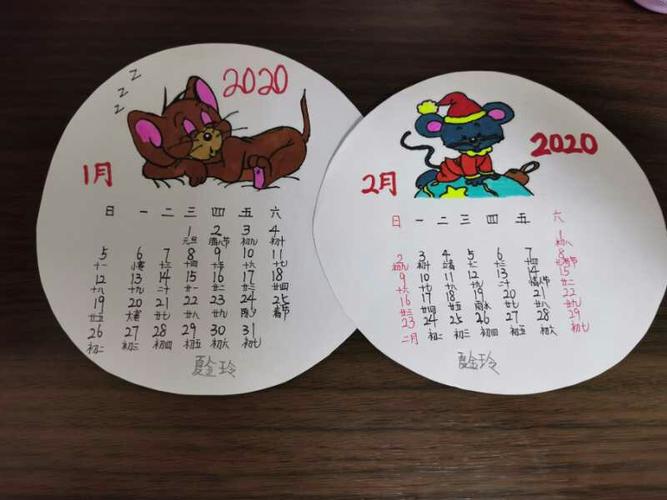 Z
Z
Z
2020
1月
日 一 二 三 四 五 六
1 2 3 4
元旦 腊八节 初九 初十
5 6 7 8 9 10 11
十一 小寒 十三 十四 十五 十六 十七
12 13 14 15 16 17 18
十八 十九 二十 廿一 廿二 廿三 廿四
19 20 21 22 23 24 25
廿五 大寒 廿七 廿八 廿九 除夕 春节
26 27 28 29 30 31
初二 初三 初四 初五 初六 初七
夏金玲
2020
2月
日 一 二 三 四 五 六
1
初八
2 3 4 5 6 7 8
初九 初十 立春 十二 十三 十四 元宵节
9 10 11 12 13 14 15
十六 十七 十八 十九 二十 情人节 廿二
16 17 18 19 20 21 22
廿三 廿四 廿五 雨水 廿七 廿八 廿九
23 24 25 26 27 28 29
二月 初二 初三 初四 初五 初六 初七
夏金玲